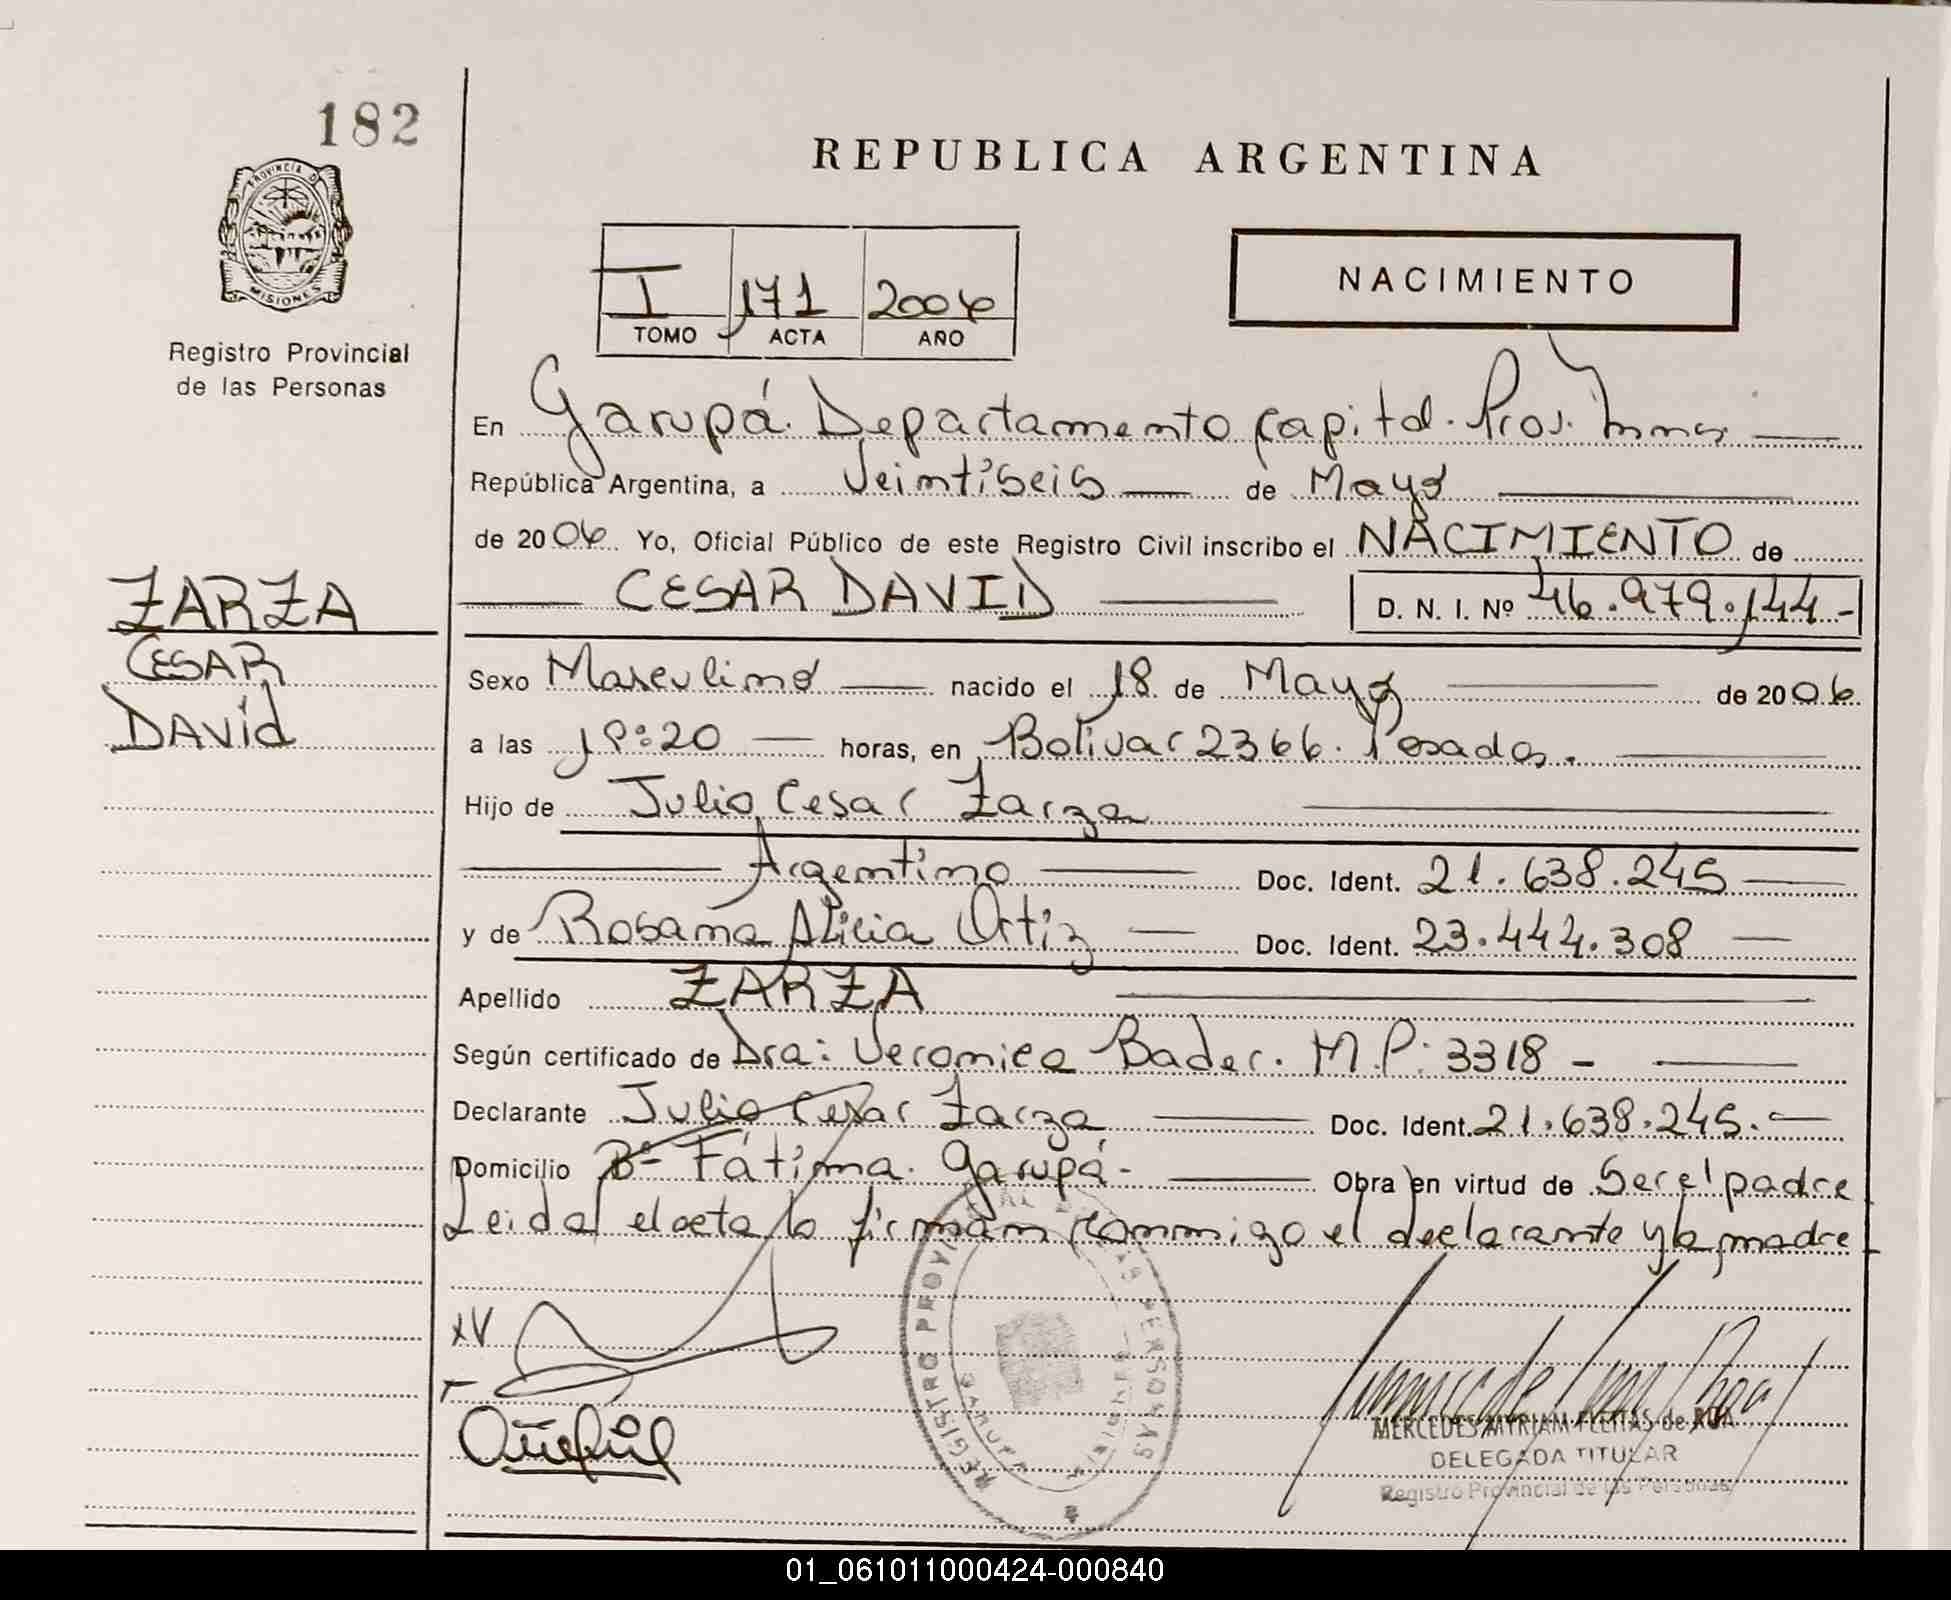 182
REPUBLICA ARGENTINA
PROVINCIA D
MISIONES
Registro Provincial
de las Personas
I 171 2006
TOMO ACTA AÑO
NACIMIENTO
En Garupá. Departamento Capital. Prov. Mnes.
República Argentina, a Veintiseis de Mayo
de 2006 Yo, Oficial Público de este Registro Civil inscribo el NACIMIENTO de
CESAR DAVID D. N. I. Nº 46.979.144.-
ZARZA
CESAR
DAVid
Sexo Masculino nacido el 18 de Mayo de 2006
a las 19:20 horas, en Bolivar 2366. Posadas.
Hijo de Julio Cesar Zarza
Argentino Doc. Ident. 21.638.245
y de Rosana Alicia Ortiz Doc. Ident. 23.444.308
Apellido ZARZA
Según certificado de Dra: Veronica Bader. M.P: 3318 -
Declarante Julio Cesar Zarza Doc. Ident. 21.638.245.
Domicilio Bº Fátima. Garupá- Obra en virtud de Ser el padre
Leida el acta la firman conmigo el declarante y la madre
REGISTRO PROVINCIAL DE LAS PERSONAS
GARUPA
MISIONES
MERCEDES MYRIAM FLEITAS de ROA
DELEGADA TITULAR
Registro Provincial de las Personas
01_061011000424-000840